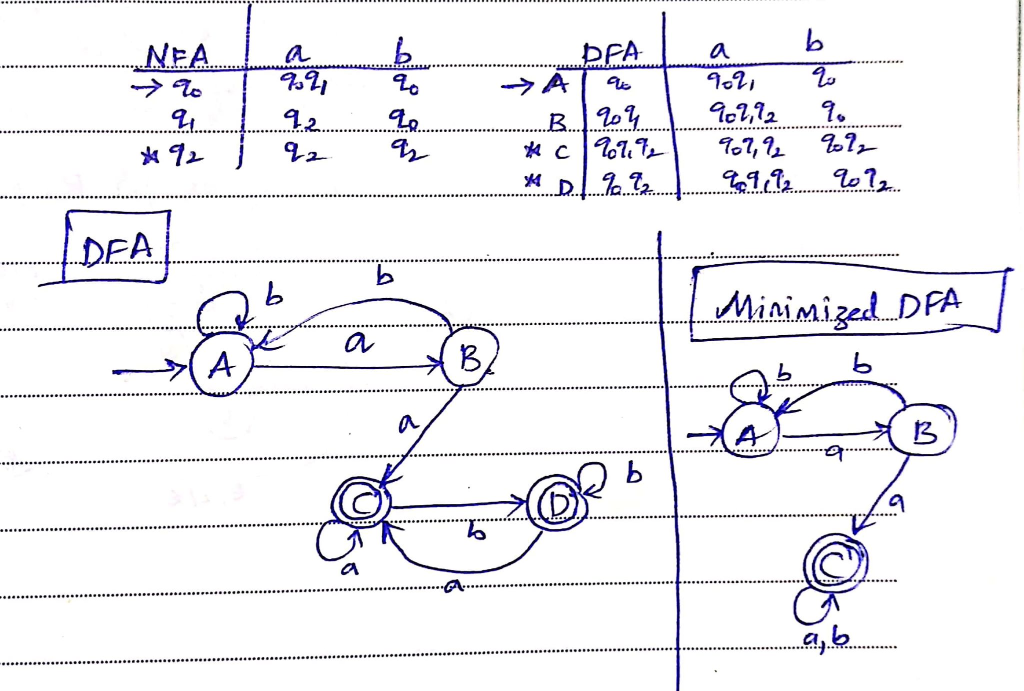 NFA a b
→ q₀ q₀q₁ q₀
q₁ q₂ q₀
* q₂ q₂ q₂
DFA a b
→ A q₀ q₀q₁ q₀
B q₀q₁ q₀q₁q₂ q₀
* C q₀q₁q₂ q₀q₁q₂ q₀q₂
* D q₀q₂ q₀q₁q₂ q₀q₂
DFA
b
b
A
a
B
a
C
b
D
b
a
a
Minimized DFA
b
b
A
a
B
a
C
a,b